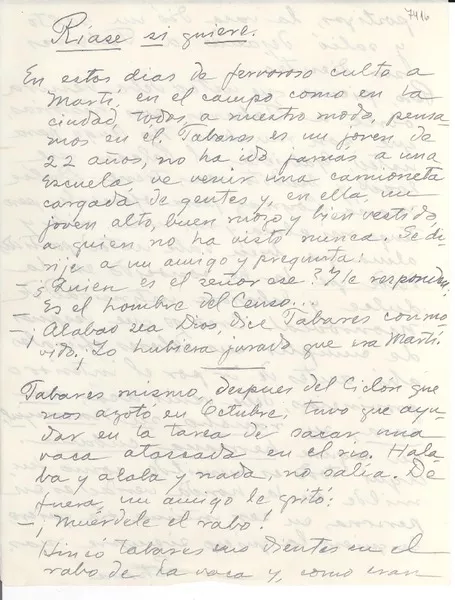 7416
Ríase si quiere.
En estos dias de fervoroso culto a
Martí, en el campo como en la
ciudad, todos, a nuestro modo, pensa-
mos en el. Tabares es un joven de
22 años, no ha ido jamás a una
Escuela ve venir una camioneta
cargada de gentes y, en ella, un
joven alto, buen mozo y bien vestido,
a quien no ha visto nunca. Se di-
rije a un amigo y pregunta:
— ¿Quien es el señor ese? Y le responden:
— Es el hombre del Censo....
— ¡Alabao sea Dios, dice Tabares conmo-
vido. ¡Lo hubiera jurado que era Martí
Tabares mismo, despues del Ciclón que
nos azotó en Octubre, tuvo que ayu-
dar en la tarea de sacar una
vaca atascada en el rio. Hala-
ba y alaba y nada, no salía. De
fuera, un amigo le gritó:
— ¡Muérdele el rabo!
Hincó Tabares sus dientes en el
rabo de la vaca y, como eran